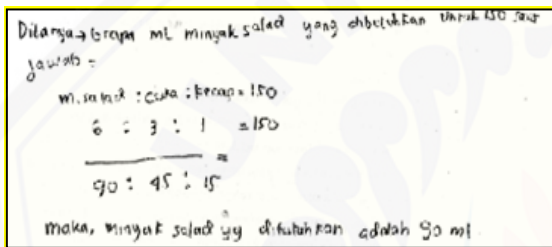 Ditanya → Berapa ml minyak salad yang dibutuhkan untuk 150 saus
jawab =
m. salad : cuka : kecap = 150
6 : 3 : 1 = 150
=
90 : 45 : 15
maka, minyak salad yg dibutuhkan adalah 90 ml